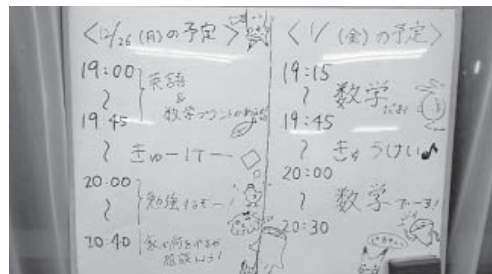 〈12/26(月)の予定〉
19:00
〜
19:45
英語
&
数学プリント
〜 きゅーけー
20:00
〜
20:40
勉強するぞー!
〈1/ (金)の予定〉
19:15
〜 数学
19:45
〜 きゅうけい♪
20:00
〜 数学
20:30